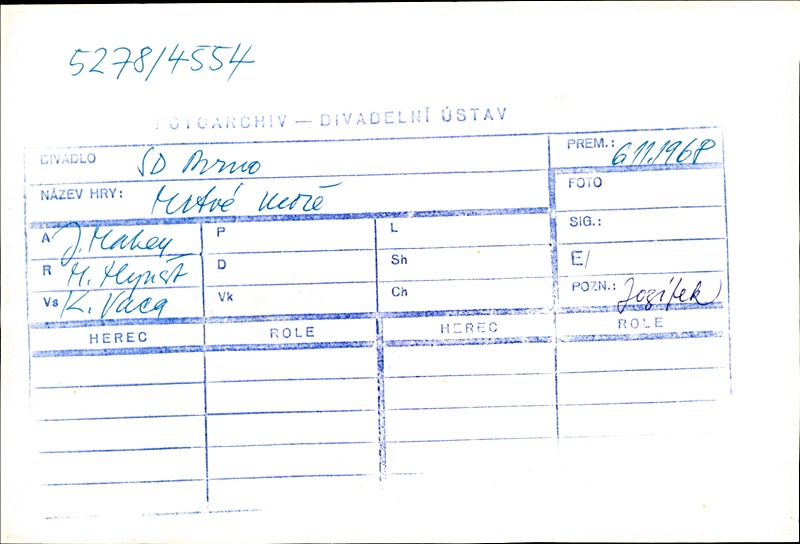 5278/4554
FOTOARCHIV — DIVADELNÍ ÚSTAV
DIVADLO SD Brno
PREM.: 6.11.1968
NÁZEV HRY: Mrtvé moře
FOTO
A J. Mahen
P
L
SIG.:
R M. Hynšt
D
Sh
E/
Vs K. Vaca
Vk
Ch
POZN.: Jozífek
HEREC
ROLE
HEREC
ROLE